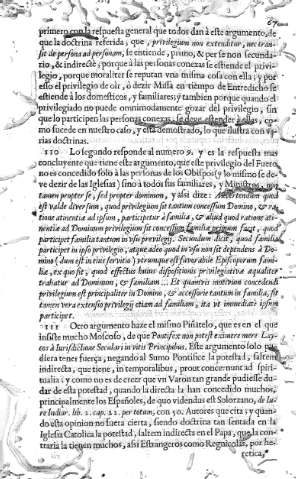 67
primero con la respuesta general que todos dàn à este argumento, de
que la doctrina referida, que, privilegium non extenditur, nec transit
de persona ad personam, se entiende, primo, & per se non secundario,
& indirectè, porque à las personas conexas se estiende el privilegio,
porque moraliter se reputan vna misma cosa con ella; y por
esso el privilegio de oir, ò dezir Missa en tiempo de Entredicho se
estiende à los domesticos, y familiares; y tambien porque quando el
privilegiado no puede omnimodamente gozar del privilegio, sin
que lo participen las personas conexas, se deve estender à ellas, como
sucede en nuestro caso, y està demostrado, lo que ilustra con varias
doctrinas.
110 Lo segundo responde al numero 9. y es la respuesta mas
concluyente que tiene este argumento, que este privilegio del Fuero
no es concedido solo à las personas de los Obispos (y lo mismo se deve
dezir de las Iglesias) sino à todos sus familiares, y Ministros, non
tamen propter se, sed propter dominum, y assi dize: Attendendum quod
est valde diversum, quod privilegium sit tantum concessum Domino, & ratione
atinentia ad ipsum, participetur à familia, & aliud quod ratione atinentia
ad Dominum privilegium sit concessum familia primum facit, quod
participet familia tantum in vsu privilegij. Secundum dicit, quod familia
participet in ipso privilegio, atque adeo quod in vsu non sit dependens à Domino
(dum est in eius servitio) vtrumque est favorabile Episcoporum familia,
ex quo sit, quod effectus huius dispositionis privilegiativa aqualiter
trahatur ad Dominum, & familiam... Et quamvis motivum concedendi
privilegium est principaliter in Domino, & accessorie tantum in familia, sit
tamen vera extensio privilegij etiam ad familiam, ita vt immediatè ipsum
participet.
111 Otro argumento haze el mismo Piñatelo, que es en el que
insiste mucho Moscoso, de que Pontifex non potest eximere mere Laycos
à Iurisdictione Seculari invitis Principibus. Este argumento solo pudiera
tener fuerça, negando al Sumo Pontifice la potestad, saltem
indirecta, que tiene, in temporalibus, prout concernunt ad spiritualia;
y como no es de creer que vn Varon tan grande pudiesse dudar
de esta potestad, quando la directa la han concedido muchos,
principalmente los Españoles, de quo videndus est Solorzano, de Iure
Indiar. lib. 1. cap. 22. per totum, con 50. Autores que cita; y quando
esta opinion no fuera cierta, siendo doctrina tan sentada en la
Iglesia Catolica la potestad, saltem indirecta en el Papa, que la contraria
la tienen muchos, assi Estrangeros como Regnicolas, por heretica,